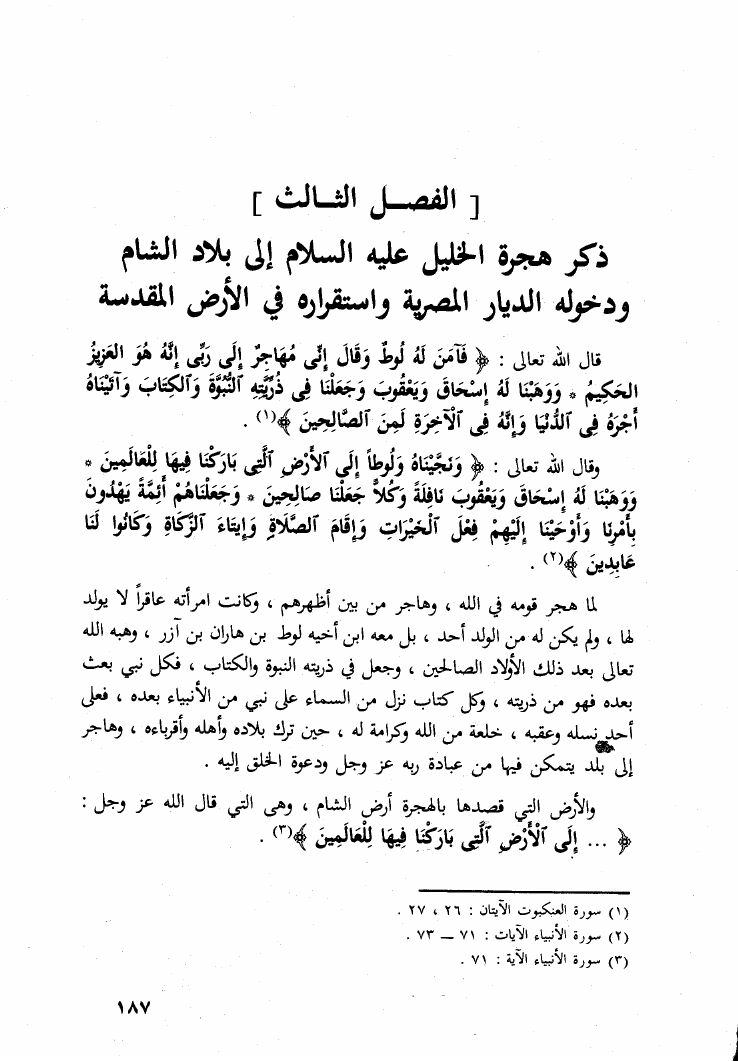 [ الفصـــل الثـــالث ]
ذكر هجرة الخليل عليه السلام إلى بلاد الشام
ودخوله الديار المصرية واستقراره في الأرض المقدسة
قال الله تعالى : ﴿ فَآمَنَ لَهُ لُوطٌ وَقَالَ إِنِّى مُهَاجِرٌ إِلَى رَبِّى إِنَّهُ هُوَ العَزِيزُ
الحَكِيمُ * وَوَهَبْنَا لَهُ إِسْحَاقَ وَيَعْقُوبَ وَجَعَلْنَا فِى ذُرِّيَّتِهِ ٱلنُّبُوَّةَ وَٱلكِتَابَ وَآتَيْنَاهُ
أَجْرَهُ فِى ٱلدُّنْيَا وَإِنَّهُ فِى ٱلْآخِرَةِ لَمِنَ ٱلصَّالِحِينَ ﴾(١) .
وقال الله تعالى : ﴿ وَنَجَّيْنَاهُ وَلُوطاً إِلَى ٱلأَرْضِ ٱلَّتِى بَارَكْنَا فِيهَا لِلْعَالَمِينَ *
وَوَهَبْنَا لَهُ إِسْحَاقَ وَيَعْقُوبَ نَافِلَةً وَكُلاًّ جَعَلْنَا صَالِحِينَ * وَجَعَلْنَاهُمْ أَئِمَّةً يَهْدُونَ
بِأَمْرِنَا وَأَوْحَيْنَا إِلَيْهِمْ فِعْلَ ٱلْخَيْرَاتِ وَإِقَامَ ٱلصَّلَاةِ وَإِيتَاءَ ٱلزَّكَاةِ وَكَانُوا لَنَا
عَابِدِينَ ﴾(٢) .
لما هجر قومه في الله ، وهاجر من بين أظهرهم ، وكانت امرأته عاقراً لا يولد
لها ، ولم يكن له من الولد أحد ، بل معه ابن أخيه لوط بن هاران بن آزر ، وهبه الله
تعالى بعد ذلك الأولاد الصالحين ، وجعل في ذريته النبوة والكتاب ، فكل نبي بعث
بعده فهو من ذريته ، وكل كتاب نزل من السماء على نبي من الأنبياء بعده ، فعلى
أحد نسله وعقبه ، خلعة من الله وكرامة له ، حين ترك بلاده وأهله وأقرباءه ، وهاجر
إلى بلد يتمكن فيها من عبادة ربه عز وجل ودعوة الخلق إليه .
والأرض التي قصدها بالهجرة أرض الشام ، وهى التي قال الله عز وجل :
﴿ ... إِلَى ٱلْأَرْضِ ٱلَّتِى بَارَكْنَا فِيهَا لِلْعَالَمِينَ ﴾(٣) .
(١) سورة العنكبوت الآيتان : ٢٦ ، ٢٧ .
(٢) سورة الأنبياء الآيات : ٧١ – ٧٣ .
(٣) سورة الأنبياء الآية : ٧١ .
١٨٧